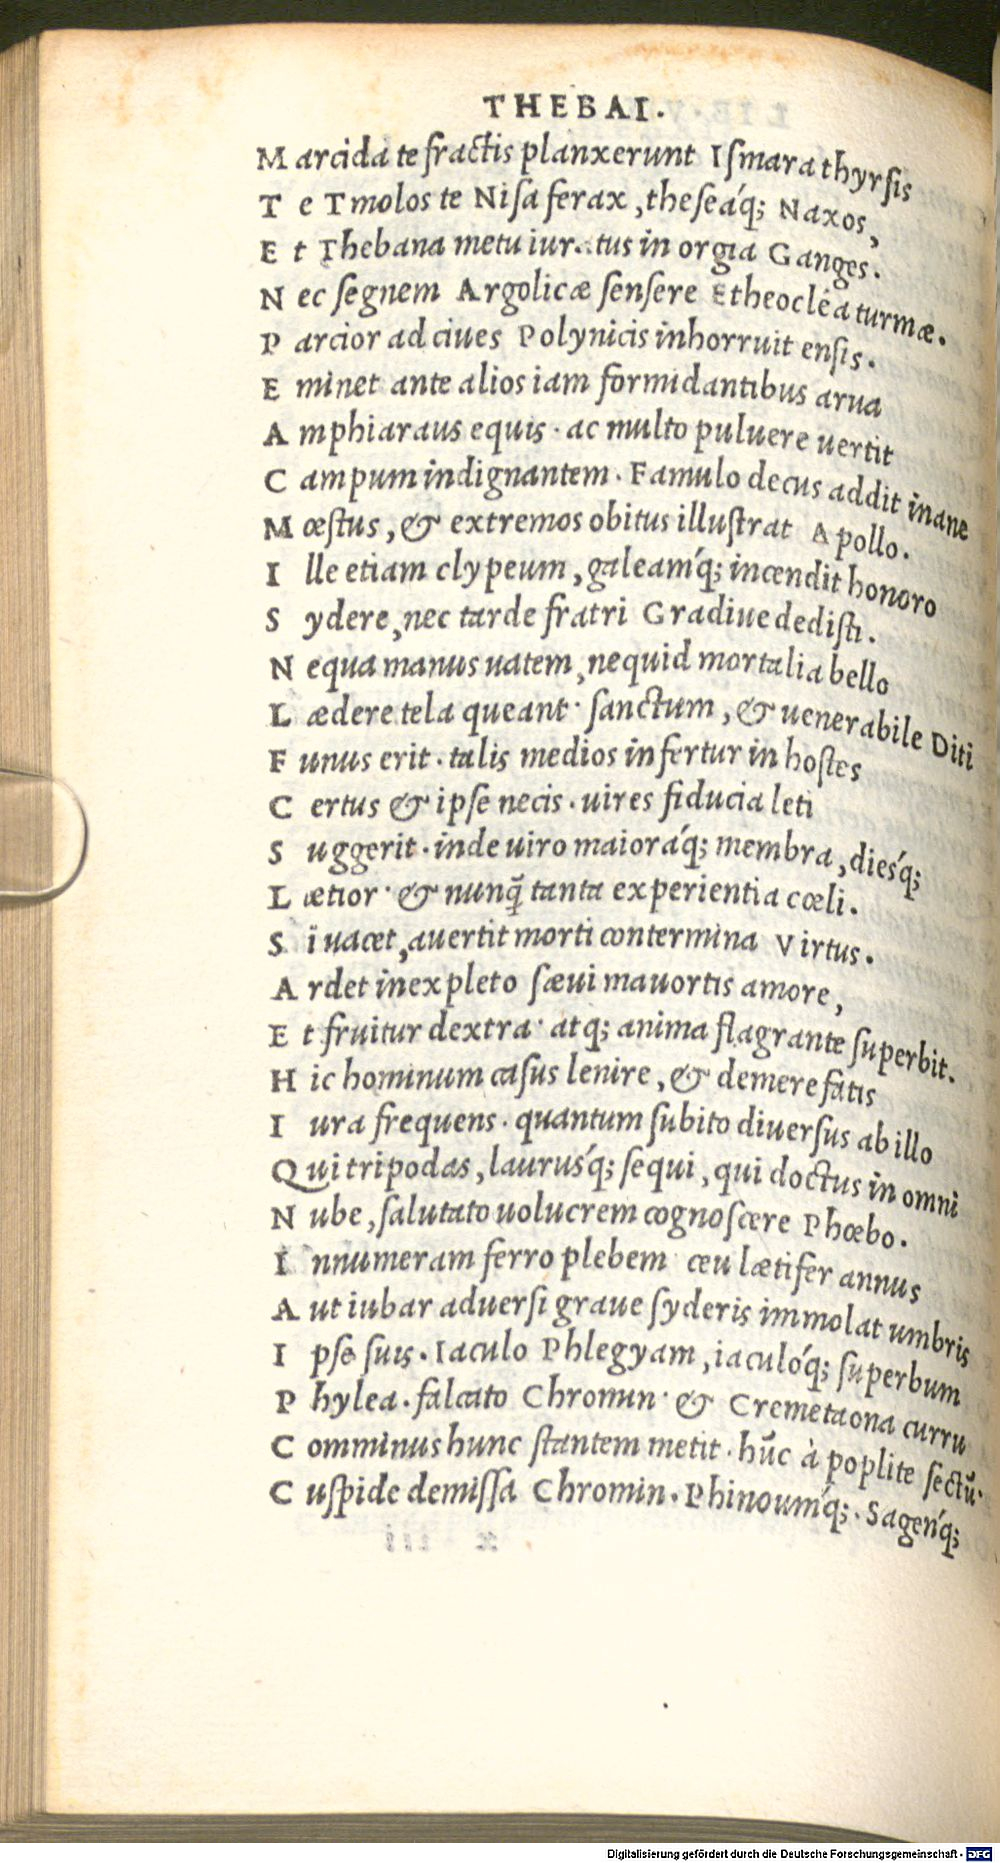 THEBAI.
M arcida te fractis planxerunt Ismara thyrsis
T e Tmolos te Nisa ferax, theseáq; Naxos,
E t Thebana metu iur..tus in orgia Ganges.
N ec segnem Argolicæ sensere Etheocléa turmæ.
P arcior ad ciues Polynicis inhorruit ensis.
E minet ante alios iam formidantibus arua
A mphiaraus equis. ac multo puluere uertit
C ampum indignantem. Famulo decus addit inane
M œstus, & extremos obitus illustrat Apollo.
I lle etiam clypeum, galeamq́; incendit honoro
S ydere, nec tarde fratri Gradiue dedisti.
N equa manus uatem, nequid mortalia bello
L ædere tela queant. sanctum, & uenerabile Diti
F unus erit. talis medios infertur in hostes
C ertus & ipse necis. uires fiducia leti
S uggerit. inde uiro maioráq; membra, diesq́;
L ætior. & nunq̃ tanta experientia cœli.
S i uacet, auertit morti contermina Virtus.
A rdet inexpleto sæui mauortis amore,
E t fruitur dextra. atq; anima flagrante superbit.
H ic hominum casus lenire, & demere fatis
I ura frequens. quantum subito diuersus ab illo
Q ui tripodas, laurusq́; sequi, qui doctus in omni
N ube, salutato uolucrem cognoscere Phœbo.
I nnumeram ferro plebem ceu lætifer annus
A ut iubar aduersi graue syderis immolat umbris
I pse suis. Iaculo Phlegyam, iaculóq; superbum
P hylea. falcato Chromin. & Cremetaona curru
C omminus hunc stantem metit. hūc à poplite sectū.
C uspide demissa Chromin. Phinoumq́;. Sagenq́;
Digitalisierung gefördert durch die Deutsche Forschungsgemeinschaft - DFG